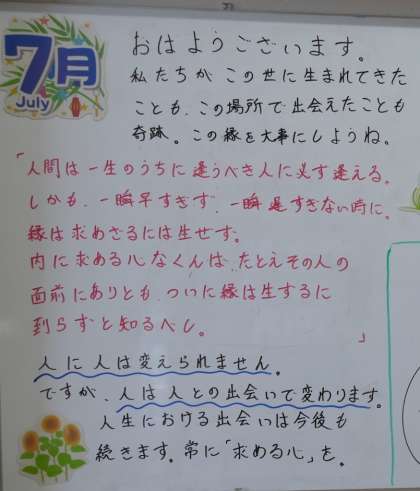 7月
July
おはようございます。
私たちが この世に生まれてきた
ことも、この場所で出会えたことも
奇跡。この縁を大事にしようね。
「人間は一生のうちに逢うべき人に必ず逢える。
しかも、一瞬早すぎず、一瞬遅すぎない時に。
縁は求めざるには生ぜず。
内に求める心なくんば、たとえその人の
面前にありとも、ついに縁は生ずるに
到らずと知るべし。」
人に人は変えられません。
ですが、人は人との出会いで変わります。
人生における出会いは今後も
続きます。常に「求める心」を。